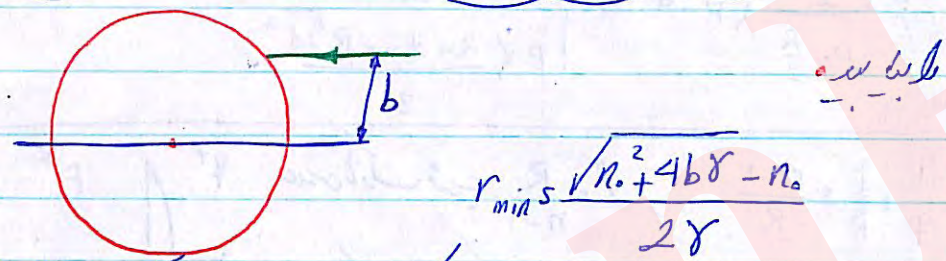 b
r_min = (√(n₀² + 4bγ) - n₀) / 2γ